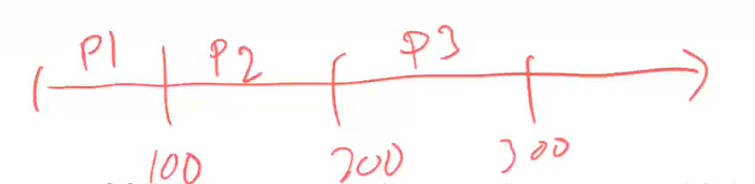 P1 P2 P3
100 200 300